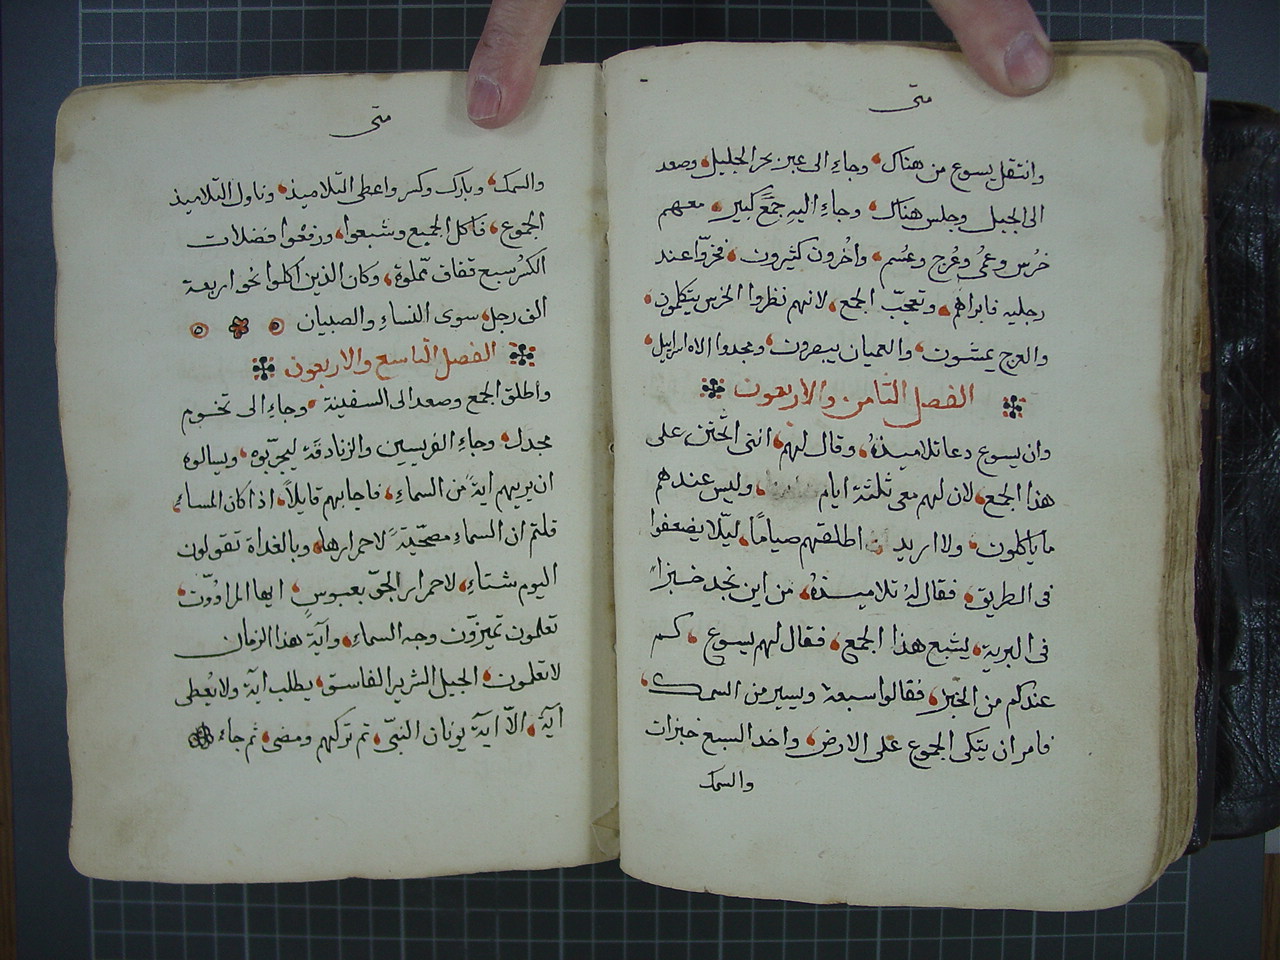 متى
وانتقل يسوع من هناك، وجاء الى عبر بحر الجليل، وصعد
الى الجبل وجلس هناك، وجاء اليهِ جَمعٌ كبير، معهم
خُرس وعُمي وعُرج وعُسُم، واخرون كثيرون، فخرّوا عند
رجليه فابراهم، وتعجّب الجمع، لانهم نظروا الخرس يتكلمون،
والعرج يمشون، والعميان يبصرون، ومجدوا الاه اسراييل،
الفصل الثامن والاربعون
وان يسوع دعا تلاميذهُ، وقال لهم، انني اتحنن على
هذا الجمع، لان لهم معي ثلثة ايام، وليس عندهم
ما ياكلون، ولا اريد اطلقهم صيامًا، ليّلا يضعفوا
في الطريق، فقال لهُ تلاميذهُ، من اين نجد خبزاً
في البرية، يشبع هذا الجمع، فقال لهم يسوع، كم
عندكم من الخبز، فقالوا سبعة ويسير من السمك،
فامر ان يتكى الجموع على الارض، واخد السبع خبزات
والسمك
متى
والسمك، وبارك وكسر واعطى التلاميذ، وناول التلاميذ
الجموع، فاكل الجميع وشبعوا، ورفعوا فضلات
الكسُر سبع قفاف مّملوة، وكان الذين اكلوا نحو اربعة
الف رجل، سوى النساءِ والصبيان
الفصل التاسع والاربعون
واطلق الجمع وصعد الى السفينة، وجاءِ الى تخوم
مجدل، وجاءِ الفريسيين والزنادقة ليجرّبوه، ويسالوه
ان يريهم ايةً من السماءِ، فاجابهم قايلاً، اذا كان المساءِ،
قلتم ان السماءِ مصحّيةً لاحمرارها، وبالغداة تقولون
اليوم شتاءِ، لاحمرار الجوّ بعبوسٍ، ايها المراوون،
تعلمون تميزون وجه السماءِ، وآية هذا الزمان
لا تعلمون، الجيل الشرير الفاسق، يطلب اية ولا يُعطى
آية، الاّ اية يونان النبّي، ثم تركهم ومضى، ثم جاءِ